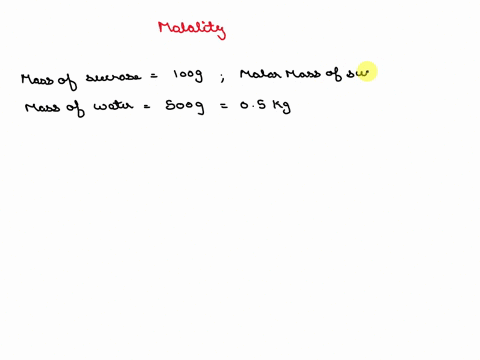 Molality
Mass of sucrose = 100g ; Molar Mass of su
Mass of water = 500g = 0.5 Kg